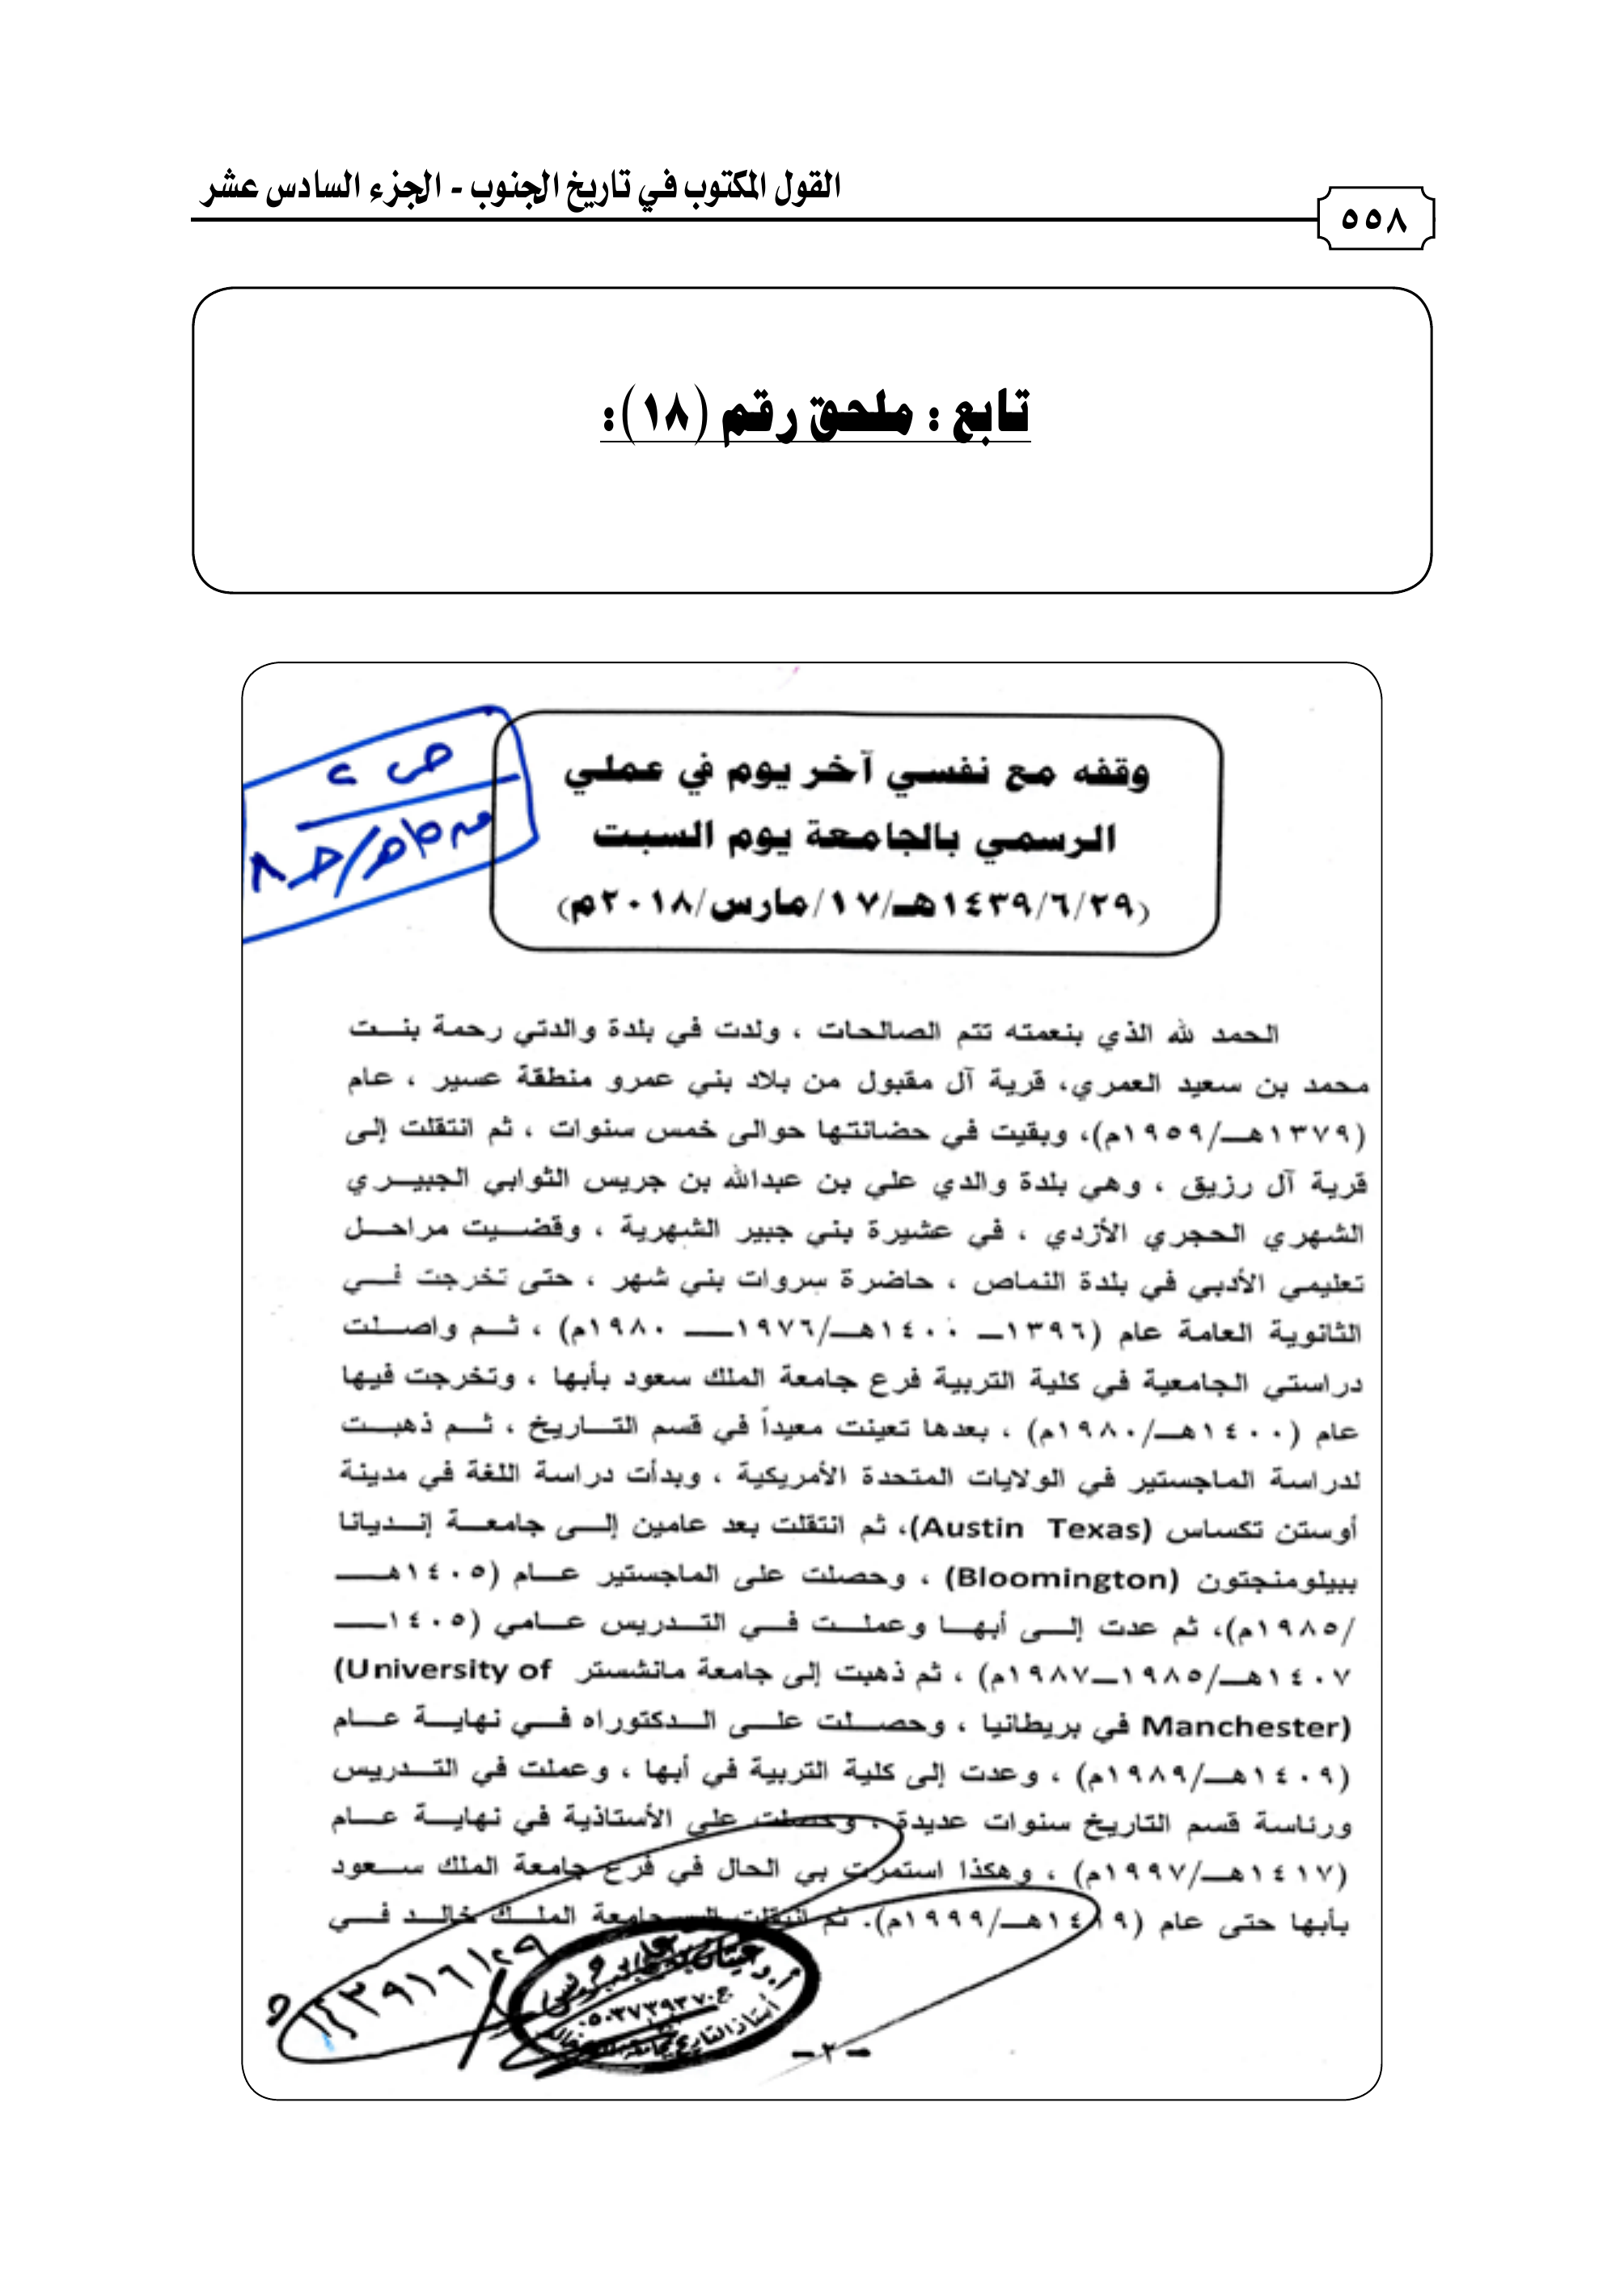 القول المكتوب في تاريخ الجنوب - الجزء السادس عشر
٥٥٨
تابع : ملحق رقم (١٨):
ص ٢
وقفه مع نفسي آخر يوم في عملي
الرسمي بالجامعة يوم السبت
(١٤٣٩/٦/٢٩هـ/١٧/مارس/٢٠١٨م)
الحمد لله الذي بنعمته تتم الصالحات ، ولدت في بلدة والدتي رحمة بنت
محمد بن سعيد العمري، قرية آل مقبول من بلاد بني عمرو منطقة عسير ، عام
(١٣٧٩هـ/١٩٥٩م)، وبقيت في حضانتها حوالى خمس سنوات ، ثم انتقلت إلى
قرية آل رزيق ، وهي بلدة والدي علي بن عبدالله بن جريس الثوابي الجبيري
الشهري الحجري الأزدي ، في عشيرة بني جبير الشهرية ، وقضيت مراحل
تعليمي الأدبي في بلدة النماص ، حاضرة سروات بني شهر ، حتى تخرجت في
الثانوية العامة عام (١٣٩٦ـ ١٤٠٠هـ/١٩٧٦ـ ١٩٨٠م) ، ثم واصلت
دراستي الجامعية في كلية التربية فرع جامعة الملك سعود بأبها ، وتخرجت فيها
عام (١٤٠٠هـ/١٩٨٠م) ، بعدها تعينت معيداً في قسم التاريخ ، ثم ذهبت
لدراسة الماجستير في الولايات المتحدة الأمريكية ، وبدأت دراسة اللغة في مدينة
أوستن تكساس (Austin Texas)، ثم انتقلت بعد عامين إلى جامعة إنديانا
ببيلومنجتون (Bloomington) ، وحصلت على الماجستير عام (١٤٠٥هـ
/١٩٨٥م)، ثم عدت إلى أبها وعملت في التدريس عامي (١٤٠٥ـ
١٤٠٧هـ/١٩٨٥ـ١٩٨٧م) ، ثم ذهبت إلى جامعة مانشستر (University of
Manchester) في بريطانيا ، وحصلت على الدكتوراه في نهاية عام
(١٤٠٩هـ/١٩٨٩م) ، وعدت إلى كلية التربية في أبها ، وعملت في التدريس
ورئاسة قسم التاريخ سنوات عديدة ، وحصلت على الأستاذية في نهاية عام
(١٤١٧هـ/١٩٩٧م) ، وهكذا استمرت بي الحال في فرع جامعة الملك سعود
بأبها حتى عام (١٤١٩هـ/١٩٩٩م). ثم انتقلت إلى جامعة الملك خالد في
١٤٣٩/٦/٢٩هـ
-٢-